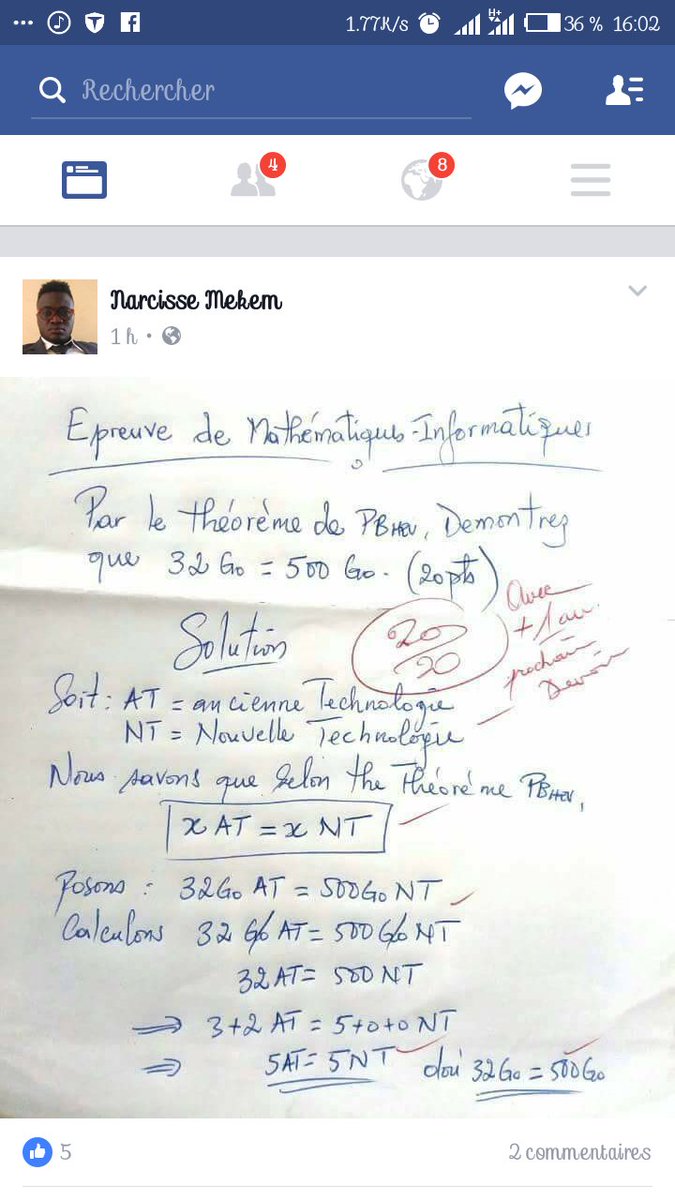 1.77K/s H+ 36 % 16:02
Rechercher
4
8
Narcisse Mekem
1 h
Epreuve de Mathématiques-Informatiques
Par le théorème de PBHEV, Demontrez
que 32 Go = 500 Go. (20pts)
20/20
Avec
+ 1 au
prochain
Devoir
Solution
Soit : AT = ancienne Technologie
NT = Nouvelle Technologie
Nous savons que selon the théorème PBHEV,
x AT = x NT
Posons : 32Go AT = 500Go NT
Calculons 32 Go AT = 500 Go NT
32 AT = 500 NT
⟹ 3+2 AT = 5+0+0 NT
⟹ 5AT = 5NT doù 32Go = 500Go
5
2 commentaires